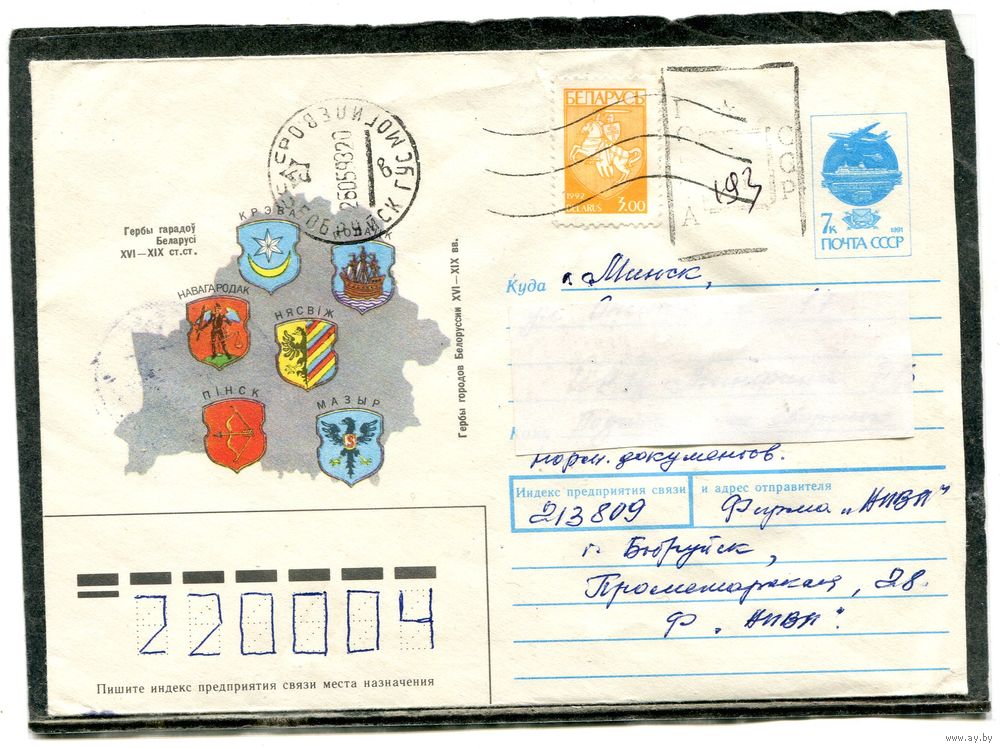 Гербы гарадоў
Беларусі
XVI—XIX ст.ст.
КРЭВА
НАВАГОРОДАК
НЯСВІЖ
ПІНСК
МАЗЫР
Гербы городов Белоруссии XVI—XIX вв.
БЕЛАРУСЬ
1992
BELARUS 3.00
193
7к
1991
ПОЧТА СССР
Куда г. Минск,
норм. документов.
Индекс предприятия связи и адрес отправителя
213809 Фирма „НПВП"
г. Бобруйск,
Пролетарская, 28.
Ф. „НПВП".
220004
Пишите индекс предприятия связи места назначения
www.ay.by